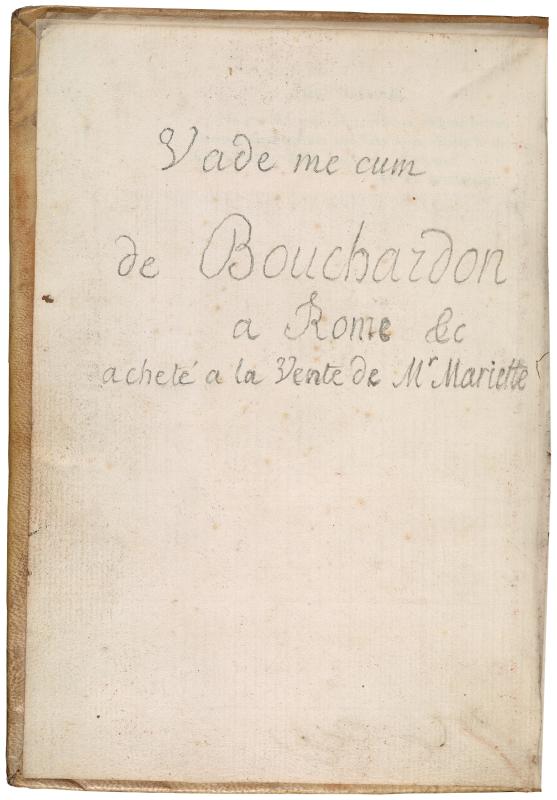 Vade me cum
de Bouchardon
a Rome &c
acheté a la Vente de Mr Mariette